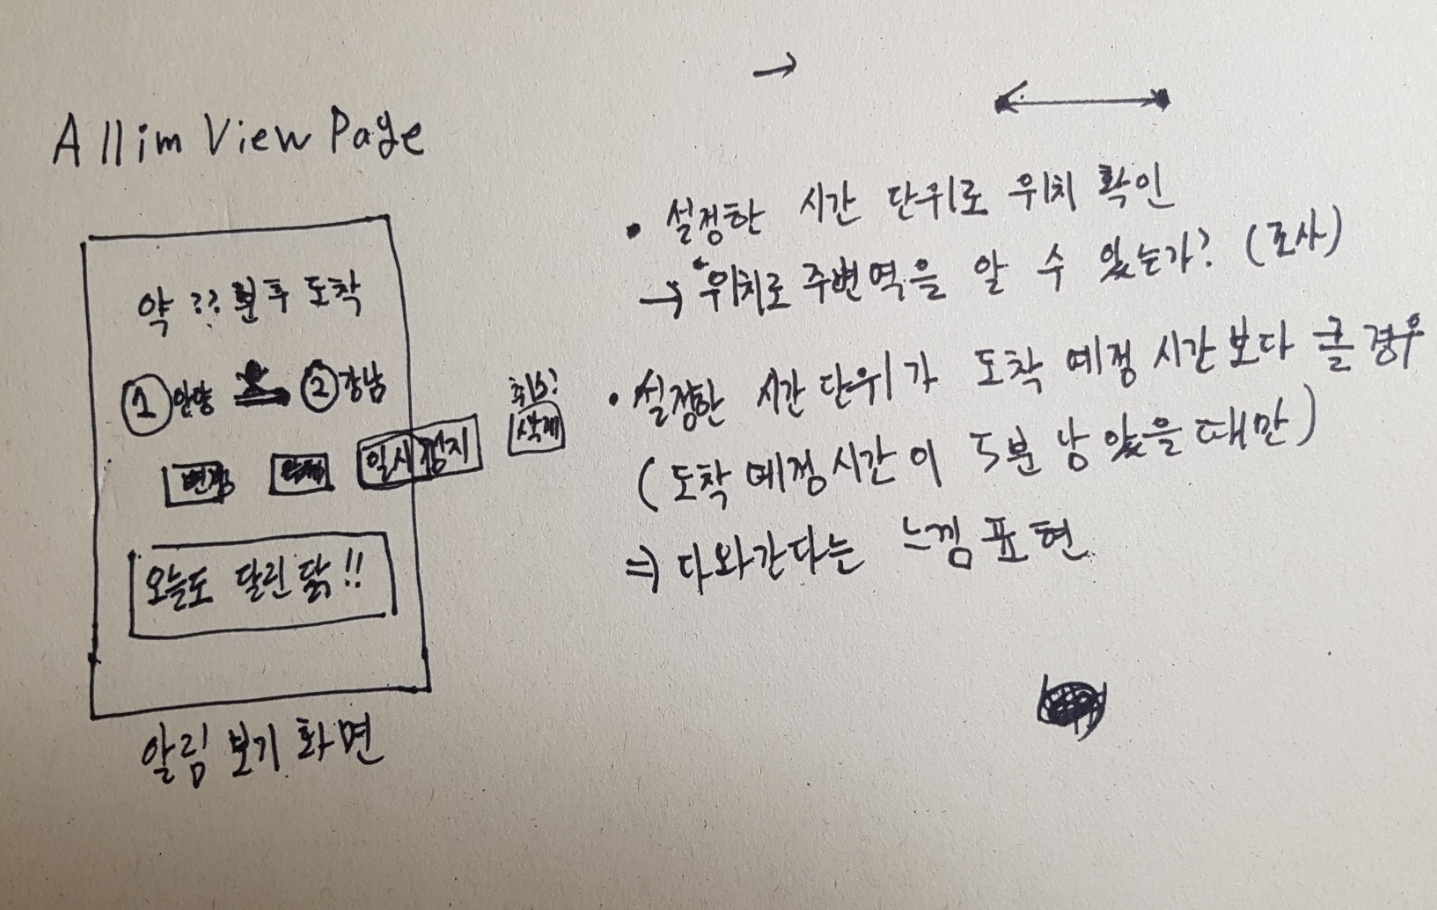 Allim View Page
약 ?? 분 후 도착
1 안양 2 강남
일시정지
취소?
삭제
오늘도 달린 닭!!
알림 보기 화면
• 설정한 시간 단위로 위치 확인
→ 위치로 주변역을 알 수 있는가? (조사)
• 설정한 시간 단위가 도착 예정 시간보다 클 경우
(도착 예정 시간이 5분 남았을 때만)
⇒ 다와간다는 느낌 표현